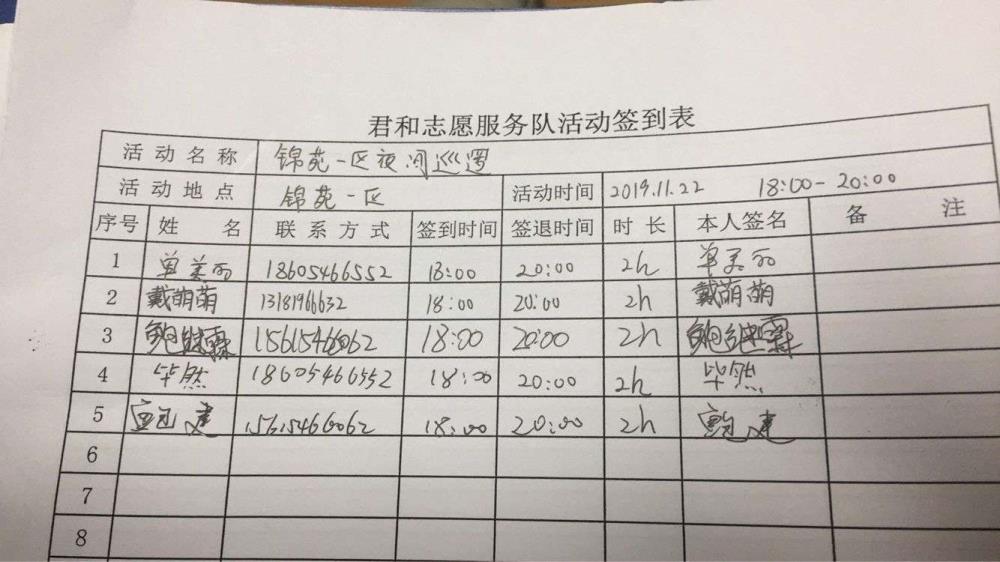 君和志愿服务队活动签到表
活动名称 锦苑一区夜间巡逻
活动地点 锦苑一区 活动时间 2019.11.22 18:00-20:00
序号 姓名 联系方式 签到时间 签退时间 时长 本人签名 备注
1 单美丽 18605466552 18:00 20:00 2h 单美丽
2 戴萌萌 13181966632 18:00 20:00 2h 戴萌萌
3 鲍继霖 15615466062 18:00 20:00 2h 鲍继霖
4 毕然 18605466552 18:00 20:00 2h 毕然
5 鲍建 15615466062 18:00 20:00 2h 鲍建
6
7
8